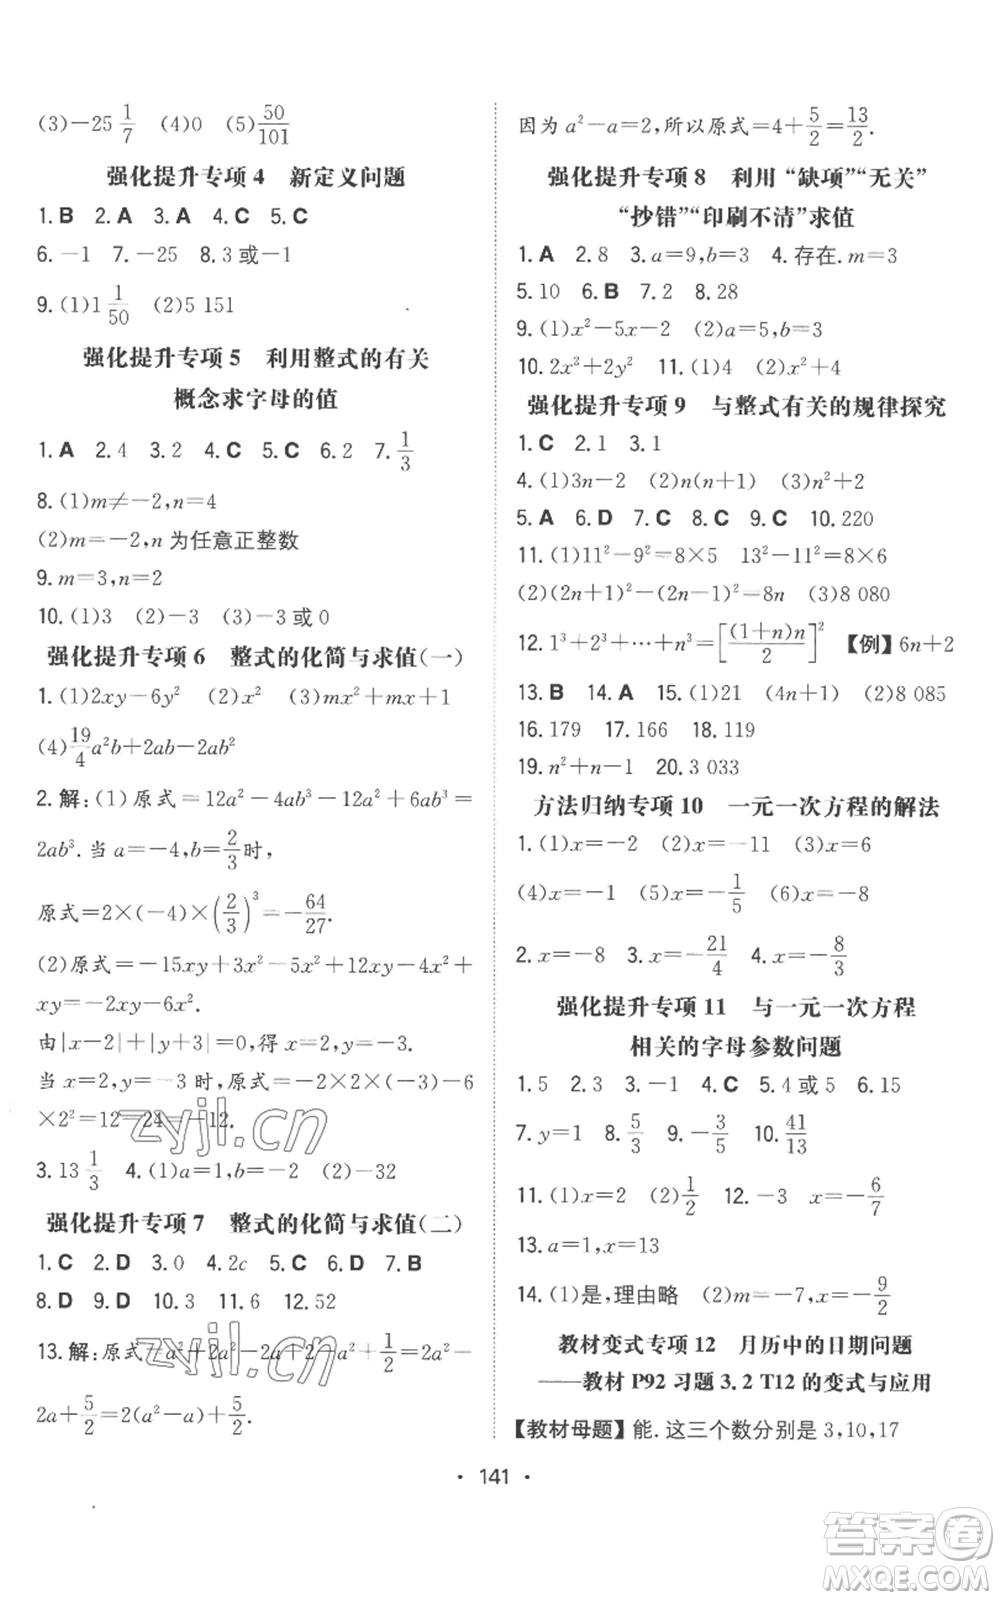 (3)-25 1/7 (4)0 (5)50/101
强化提升专项 4 新定义问题
1. B 2. A 3. A 4. C 5. C
6. -1 7. -25 8. 3 或-1
9. (1)1 1/50 (2)5 151
强化提升专项 5 利用整式的有关
概念求字母的值
1. A 2. 4 3. 2 4. C 5. C 6. 2 7. 1/3
8. (1)m≠-2,n=4
(2)m=-2,n 为任意正整数
9. m=3,n=2
10. (1)3 (2)-3 (3)-3 或 0
强化提升专项 6 整式的化简与求值(一)
1. (1)2xy-6y² (2)x² (3)mx²+mx+1
(4)19/4a²b+2ab-2ab²
2. 解:(1)原式=12a²-4ab³-12a²+6ab³=
2ab³. 当 a=-4,b=2/3时,
原式=2×(-4)×(2/3)³=-64/27.
(2)原式=-15xy+3x²-5x²+13xy-4x²+
xy=-2xy-6x².
由|x-2|+|y+3|=0,得 x=2,y=-3.
当 x=2,y=-3 时,原式=-2×2×(-3)-6
×2²=12-24=-12.
3. 13 1/3 4. (1)a=1,b=-2 (2)-32
强化提升专项 7 整式的化简与求值(二)
1. C 2. D 3. 0 4. 2c 5. C 6. D 7. B
8. D 9. D 10. 3 11. 6 12. 52
13. 解:原式=a²-2a+a²+1/2=2a²-
2a+5/2=2(a²-a)+5/2.
因为 a²-a=2,所以原式=4+5/2=13/2.
强化提升专项 8 利用“缺项”“无关”
“抄错”“印刷不清”求值
1. A 2. 8 3. a=9,b=3 4. 存在. m=3
5. 10 6. B 7. 2 8. 28
9. (1)x²-5x-2 (2)a=5,b=3
10. 2x²+2y² 11. (1)4 (2)x²+4
强化提升专项 9 与整式有关的规律探究
1. C 2. 1 3. 1
4. (1)3n-2 (2)n(n+1) (3)n²+2
5. A 6. D 7. C 8. C 9. C 10. 220
11. (1)11²-9²=8×5 13²-11²=8×6
(2)(2n+1)²-(2n-1)²=8n (3)8 080
12. 1³+2³+…+n³=[(1+n)n/2]² 【例】6n+2
13. B 14. A 15. (1)21 (4n+1) (2)8 085
16. 179 17. 166 18. 119
19. n²+n-1 20. 3 033
方法归纳专项 10 一元一次方程的解法
1. (1)x=-2 (2)x=-11 (3)x=6
(4)x=-1 (5)x=-1/5 (6)x=-8
2. x=-8 3. x=-21/4 4. x=-8/3
强化提升专项 11 与一元一次方程
相关的字母参数问题
1. 5 2. 3 3. -1 4. C 5. 4 或 5 6. 15
7. y=1 8. 5/3 9. -3/5 10. 41/13
11. (1)x=2 (2)1/2 12. -3 x=-6/7
13. a=1,x=13
14. (1)是,理由略 (2)m=-7,x=-9/2
教材变式专项 12 月历中的日期问题
——教材 P92 习题 3. 2 T12 的变式与应用
【教材母题】能. 这三个数分别是 3,10,17
• 141 •
zyjl.cn
zyjl.cn
答案圈
MXQE.COM